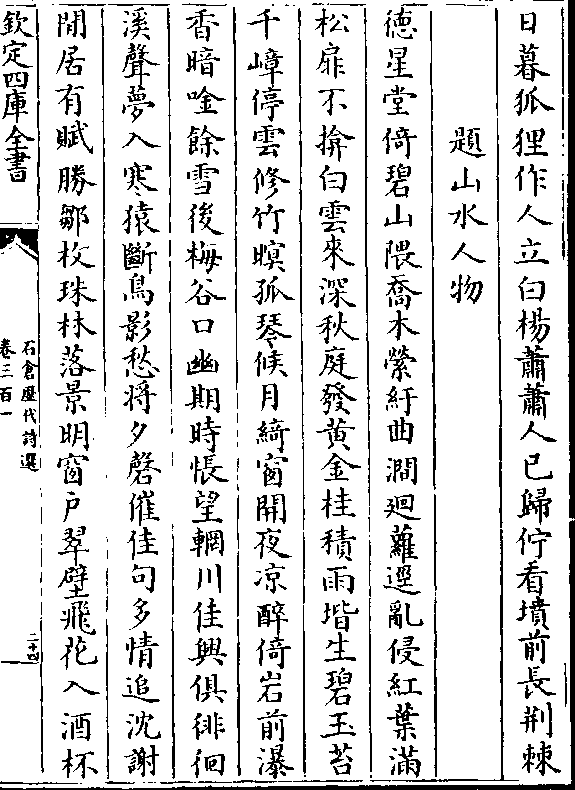 日暮狐狸作人立白楊蕭蕭人已歸佇看墳前長荆棘
題山水人物
德星堂倚碧山隈喬木縈紆曲澗迴蘿逕亂侵紅葉滿
松扉不揜白雲來深秋庭發黄金桂積雨堦生碧玉苔
千嶂停雲修竹暝孤琴候月綺窗開夜凉醉倚岩前瀑
香暗唫餘雪後梅谷口幽期時悵望輞川佳興俱徘徊
溪聲夢入寒猿斷鳥影愁将夕磬催佳句多情追沈謝
閒居有賦勝鄒枚珠林落景明窗户翠壁飛花入酒杯
欽定四庫全書
石倉歷代詩選
卷三百一
二十四